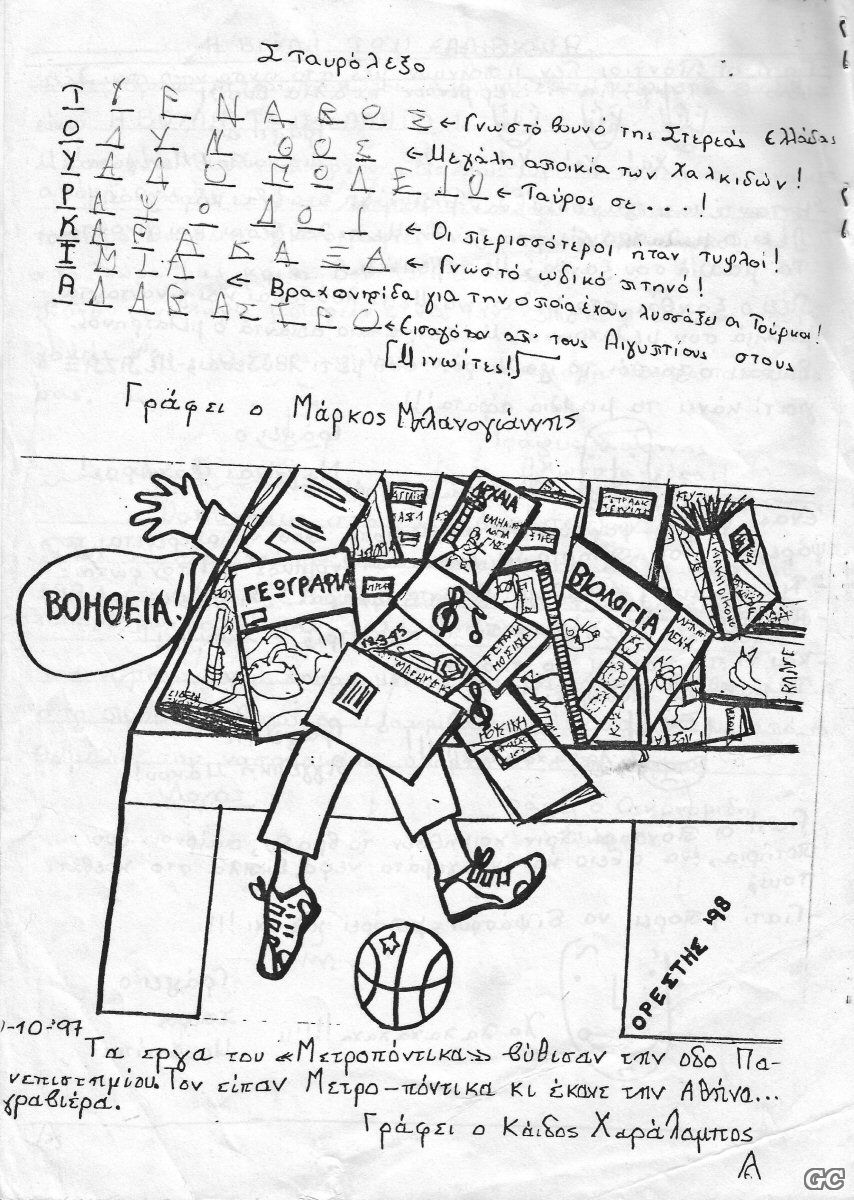 Σταυρόλεξο
Τ Υ Ε Ν Α Β Ο Σ ← Γνωστό βουνό της Στερεάς Ελλάδας
Ο Λ Υ Ν Θ Ο Σ ← Μεγάλη αποικία των Χαλκιδών!
Υ ← Ταύρος σε....!
Ρ Α Ψ Ο Δ Ο Ι ← Οι περισσότεροι ήταν τυφλοί!
Κ Α Ρ Α Κ Α Ξ Α ← Γνωστό ωδικό πτηνό!
Ι Μ Ι Α ← Βραχονησίδα για την οποία έχουν λυσσάξει οι Τούρκοι!
Α Λ Α Β Α Σ Τ Ρ Ο ← Εισαγόταν απ' τους Αιγυπτίους στους
[Μινωίτες!]
Γράφει ο Μάρκος Μπλανογιάννης
ΒΟΗΘΕΙΑ!
ΓΕΩΓΡΑΦΙΑ
ΑΡΧΑΙΑ
ΒΙΟΛΟΓΙΑ
ΟΡΕΣΤΗΣ '98
-10-'97
Τα εργα του «Μετροπόντικα» βύθισαν την οδο Πα-
νεπιστημίου. Τον είπαν Μετρο-πόντικα κι έκανε την Αθήνα...
γραβιέρα.
Γράφει ο Κάιδος Χαράλαμπος
Α
GC